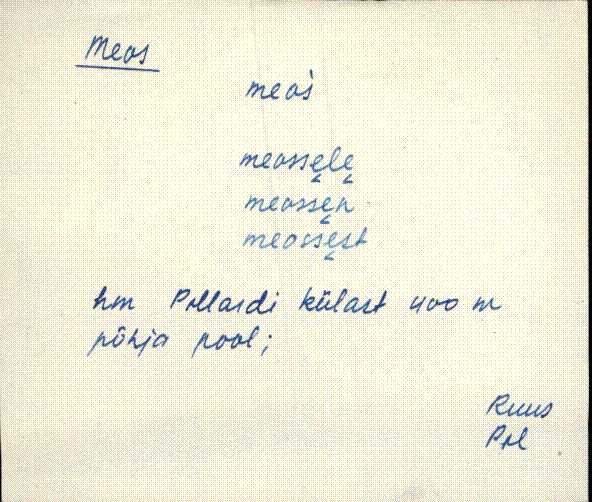 Meos
meoś
meossẹlẹ
meossẹn
meossẹst
hm Pollardi külast 400 m
põhja pool;
Ruus